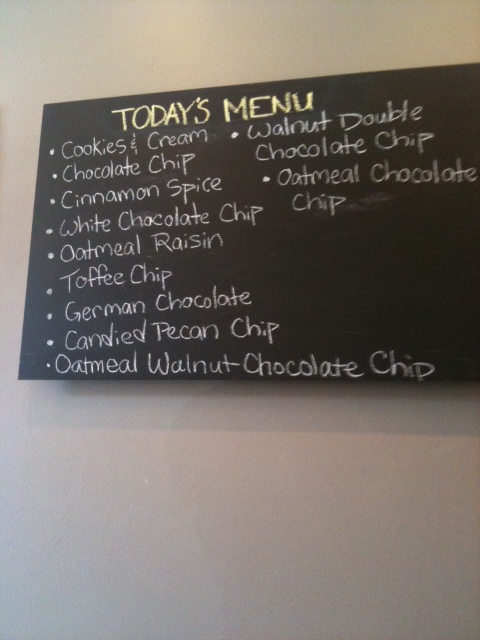 TODAY'S MENU
• Cookies & Cream
• Chocolate Chip
• Cinnamon Spice
• White Chocolate Chip
• Oatmeal Raisin
• Toffee Chip
• German Chocolate
• Candied Pecan Chip
• Oatmeal Walnut Chocolate Chip
• Walnut Double
Chocolate Chip
• Oatmeal Chocolate
Chip